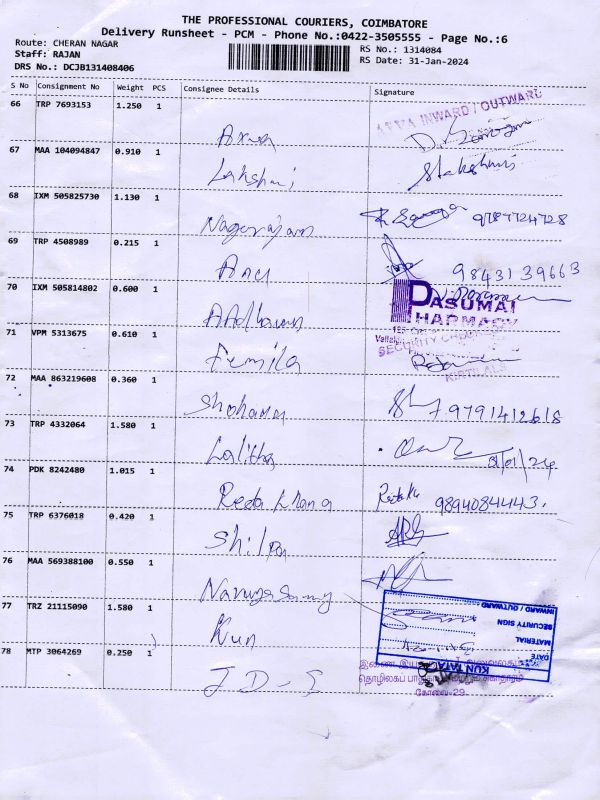 THE PROFESSIONAL COURIERS, COIMBATORE
Delivery Runsheet - PCM - Phone No.:0422-3505555 - Page No.:6
Route: CHERAN NAGAR
RS No.: 1314084
Staff: RAJAN
RS Date: 31-Jan-2024
DRS No.: DCJB131408406
S No Consignment No Weight PCS Consignee Details Signature
66 TRP 7693153 1.250 1
INWARD / OUTWARD
Arun
67 MAA 104094847 0.910 1
Lakshmi
68 IXM 505825730 1.130 1
Nagarajan 9787724728
69 TRP 4508989 0.215 1
Anu 9843139663
70 IXM 505814802 0.600 1
PASUMAI
PHARMACY
71 VPM 5313675 0.610 1
SECURITY
Femila
KIRTILALS
72 MAA 863219608 0.360 1
9791412618
73 TRP 4332064 1.580 1
Lalitha 31/01/24
74 PDK 8242480 1.015 1
9894084443.
75 TRP 6376018 0.420 1
Shilpa
76 MAA 569388100 0.550 1
77 TRZ 21115090 1.580 1
Kun
INWARD / OUTWARD
SECURITY SIGN
MATERIAL
DATE
KUN TATA
78 MTP 3064269 0.250 1
J D - S
கோவை-29